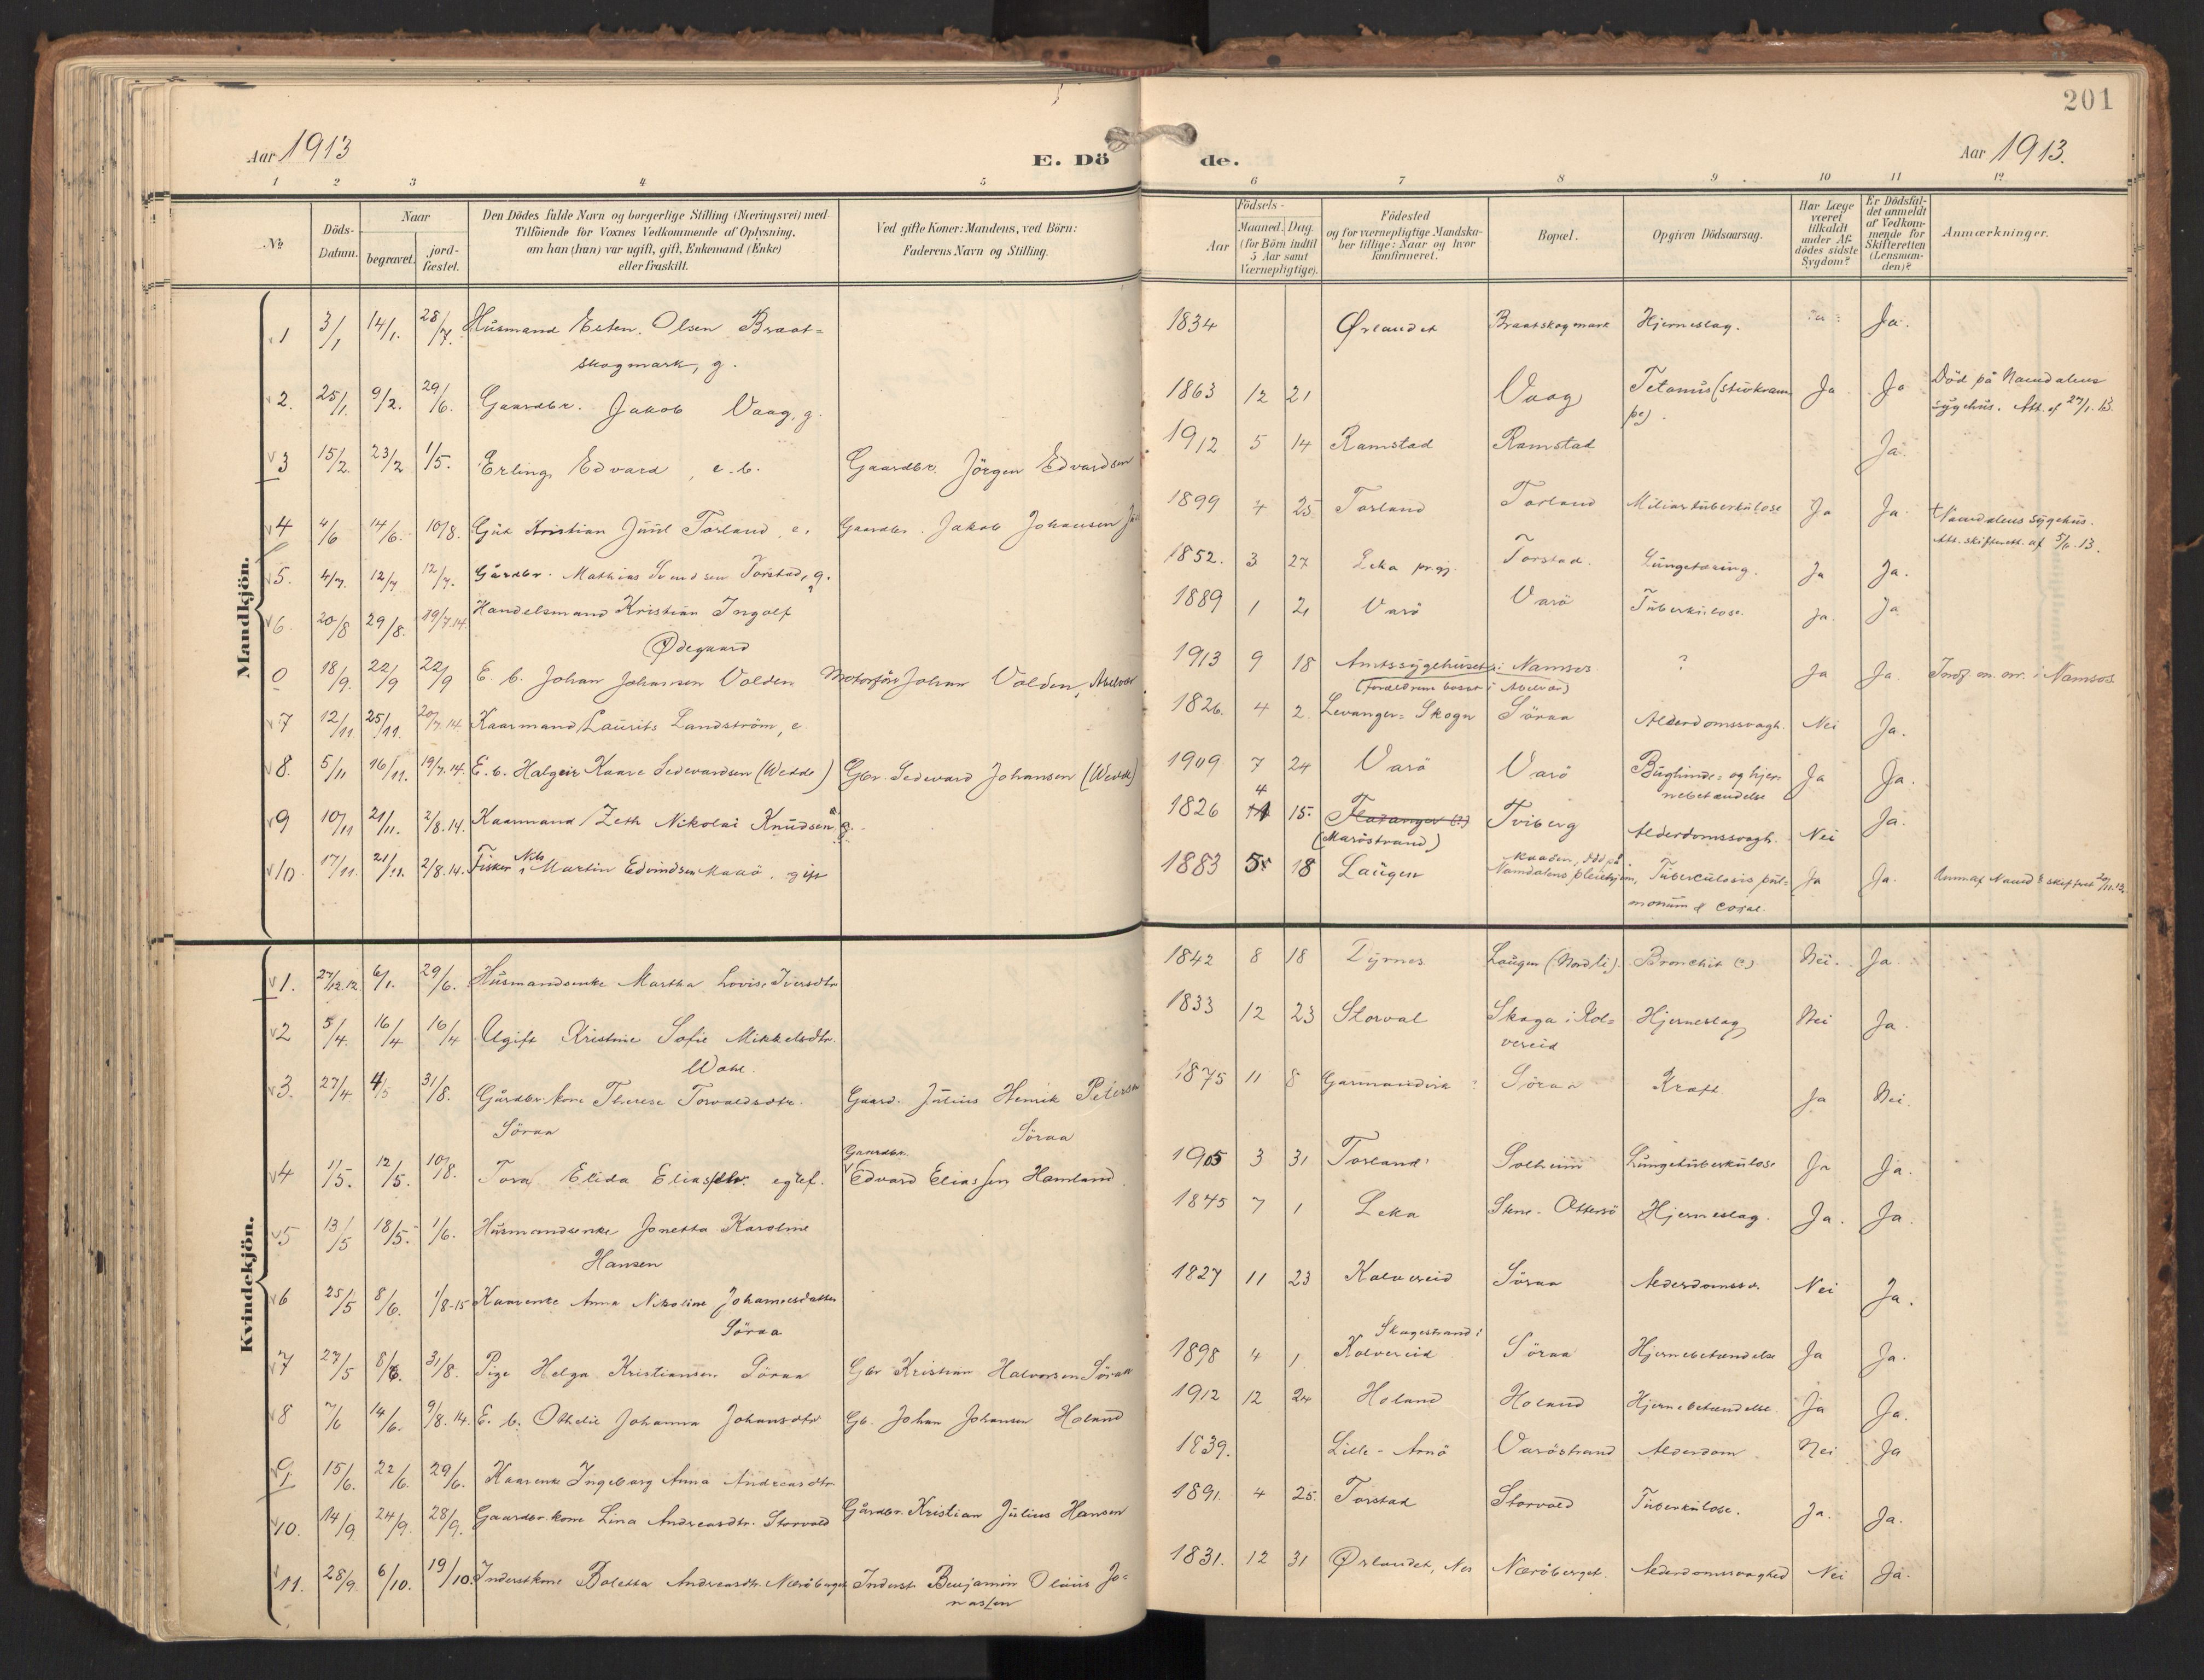 201
Aar 1913
E. Dö
de.
Aar 1913.
1 2 3 4 5 6 7 8 9 10 11 12
№
Döds-Datum.
Naar
begravet.
jord-fæstet.
Den Dödes fulde Navn og borgerlige Stilling (Næringsvei) med
Tilföiende for Voxnes Vedkommende af Oplysning,
om han (hun) var ugift, gift, Enkemand (Enke)
eller fraskilt.
Ved gifte Koner: Mandens, ved Börn:
Faderens Navn og Stilling.
Födsels-
Aar
Maaned. Dag.
(for Börn indtil
5 Aar samt
Værnepligtige).
Födested
og for værnepligtige Mandska-
ber tillige: Naar og hvor
konfirmeret.
Bopæl.
Opgiven Dödsaarsag.
Har Læge
været
tilkaldt
under Af-
dödes sidste
Sygdom?
Er Dödsfal-
det anmeldt
af Vedkom-
mende for
Skifteretten
(Lensman-
den)?
Anmærkninger.
Mandkjön.
1 3/1 14/1. 28/7. Husmand Esten Olsen Braat= 1834 Ørlandet Braatskogmark Hjerneslag. Ja.
skogmark, g.
2. 25/1. 9/2. 29/6. Gaardbr. Jakob Vaag, g. 1863 12 21 Vaag Tetanus (stivkram Ja Ja Död på Namdalens
pe). sygehus. Att. af 27/1.13.
3 15/2. 23/2 1/5. Erling Edvard, e.b. Gaardbr. Jörgen Edvardsen 1912 5 14 Ramstad Ramstad Ja.
4 4/6 14/6. 10/8. Gut Kristian Juul Torland, e. Gaardbr. Jakob Johansen 1899 4 25 Torland Torland Miliærtuberkulose Ja Ja. Namdalens sygehus.
Att. skifterett. af 5/6.13.
5. 4/7. 12/7 12/7. Gårdbr. Mathias Svendsen Torstad, g. 1852. 3 27 Leka pr.gj. Torstad. Lungetæring. Ja Ja.
6. 20/8 29/8. 19/7.14. Handelsmand Kristian Ingolf 1889 1 2 Varö Varö Tuberkulose. Ja. Ja
Ødegaard
0 18/9. 22/9 22/9 E. b. Johan Johansen Volden Motorförer Johan Volden, Abelvær 1913 9 18 Amtssygehuset i Namsos ? Ja Ja. Indf. m. nr. i Namsos
(forældrene bosat i Abelvær)
7 12/11 25/11. 20/7.14 Kaarmand Laurits Landström, e. 1826. 4 2. Levanger= Skogn Söraa Alderdomssvagh. Nei Ja.
8. 5/11 16/11. 19/7.14. E. b. Halgeir Kaare Sedevardsen (Wedde) Gbr. Sedevard Johansen (Wedde) 1909 7 24 Varö Varö Bughinde= og hjer= Ja Ja.
nebetændelse
9 10/11 21/11. 2/8.14. Kaarmand Zeth Nikolai Knudsen 1826 4 15. Flatanger (?) Tviberg Alderdomssvagh. Nei Ja.
(Maröstrand)
10 17/11. 21/11. 2/8.14. Fisker Nils Martin Edvindsen Maaö, gift 1883 5 18 Laugen Maaöen, död på
Namdalens pleiehjem, Tuberculosis pul= Ja Ja.
monum
Kvindekjön.
1. 27/12.12. 6/1. 29/6. Husmandsenke Martha Lovise Iversdtr 1842 8 18 Dyrnes Laugen (Nordli). Bronchit (?) Nei. Ja
2 5/4. 16/4 16/4 Ugift Kristine Sofie Mikkelsdtr. 1833 12 23 Storval Skaga i Kol= Hjerneslag Nei Ja.
vereid
3. 27/4 4/5 31/8. Gårdbr.kone Therese Torvaldsdtr. Gaard. Julius Henrik Petersen 1875 11 8 Garmandvik Söraa Kræft Ja Nei.
Söraa Söraa
4 1/5. 12/5. 10/8. Tora Elida Eliasdtr. Gaardbr.
Edvard Eliassen Hamland. 1905 3 31 Torland Solheim Lungetuberkulose Ja Ja.
5 13/5 18/5. 1/6. Husmandsenke Jonetta Karoline 1845 7 1 Leka Stene- Otterö Hjerneslag. Ja. Ja.
Hansen
6 25/5 8/6. 1/8-15 Kaarenke Anna Nikoline Johannesdatter 1827 11 23 Kolvereid Söraa Alderdomssv. Nei Ja.
Söraa
7 27/5 8/6. 31/8. Pige Helga Kristiansen Söraa Gbr Kristian Halvorsen Söraa 1898 4 1 Skagestrand i
Kolvereid Söraa Hjernebetændelse Ja Ja.
8 7/6 14/6. 9/8.14. E. b. Othelie Johanna Johansdtr Gb. Johan Johansen Holand 1912 12 24 Holand Holand Hjernebetændelse Ja Ja.
9 15/6. 22/6. 29/6. Kaarenke Ingeborg Anna Andreasdtr. 1839. Lille- Arnö Varöstrand Alderdom Nei Ja
10. 14/9. 24/9. 28/9. Gaardbr.kone Lina Andreasdtr. Storvold Gårdbr. Kristian Julius Hansen 1891. 4 25. Torstad Storvold Tuberkulose. Ja. Ja.
11. 28/9. 6/10. 19/10. Inderstkone Boletta Andreasdtr. Næröberget Inderst Benjamin Olaus Jo= 1831. 12 31 Ørlandet, Nes Næröberget. Alderdomssvaghed Nei Ja.
nassen